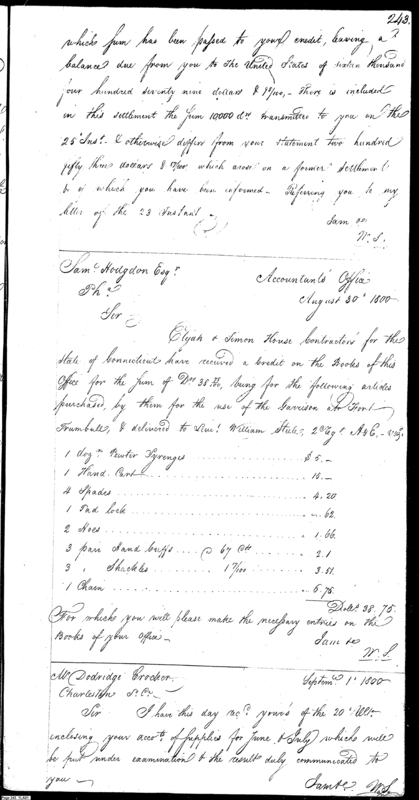 243.
which sum has been passed to your credit, leaving a
balance due from you to the United States of sixteen thousand
four hundred seventy nine dollars & /100,- There is included
in this settlement the sum 10000 drs transmitted to you on the
25th Inst. & otherwise differs from your statement two hundred
fifty three dollars & which arose on a former settlement
& of which you have been informed- Referring you to my
letter of the 23 Instant-
I am &c
W. S.
Saml Hodgdon Esqr.
Pha
Accountants Office
August 30th 1800
Sir
Elijah & Simon House Contractors for the
State of Connecticut have received a Credit on the Books of this
Office for the sum of Drs 38 75/100, being for the following articles
purchased by them for the use of the Garrison at Fort
Trumbull, & delivered to Lieut. William Steele, 2d Regt. A & E,- viz.
1 dozn Pewter Syrenges $ 5.-
1 Hand Cart 15.-
4 Spades 4.20
1 Pad lock .62
2 Hoes 1.66
3 pair Hand Cuffs @ 67 Cts 2.1
3 " Shackles 1 17/100 3.51
1 Chain 6.75
Dolls. 38.75
For which you will please make the necessary entries on the
Books of your Office-
I am &c
W. S.
Mr Dodridge Crocker
Septemr 1st 1800
Charleston So. Ca.
Sir I have this day recd. yours of the 20th Ulto.
enclosing your accots of Supplies for June & July which will
be put under examination & the result duly communicated to
you-
I am &c. W. S.